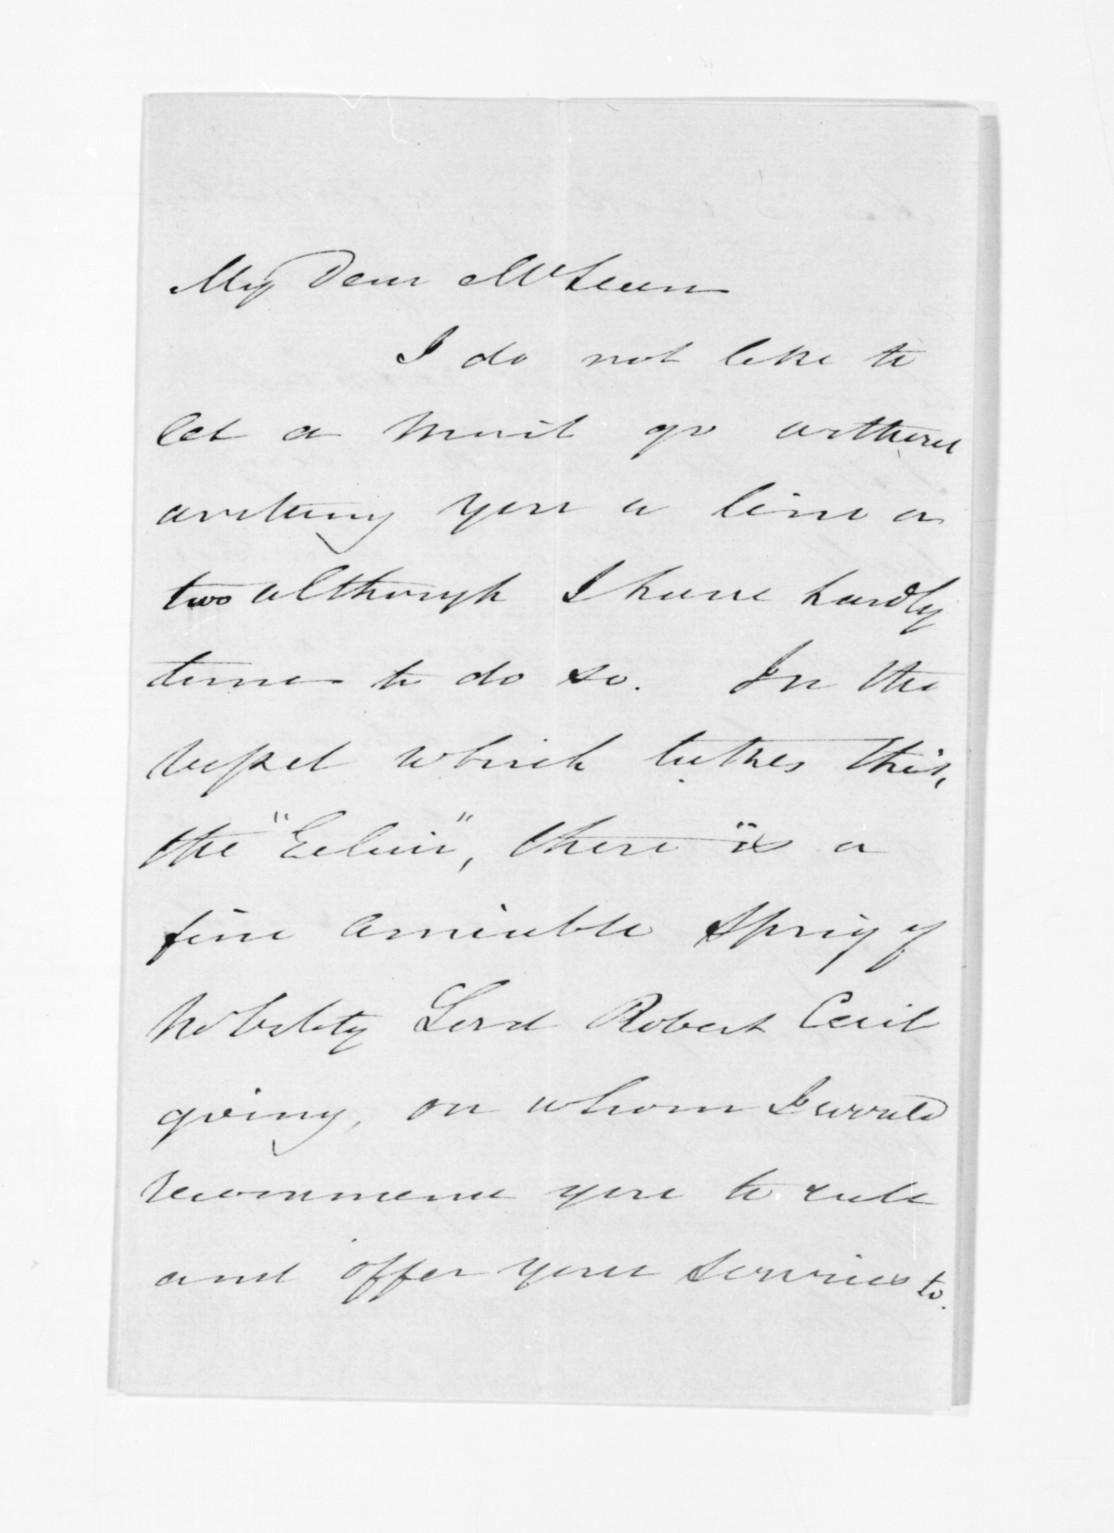 My Dear McLean
I do not like to
let a mail go without
writing you a line or
two although I have hardly
time to do so. In the
vessel which takes this,
the "Eelin", there is a
fine amiable Sprig of
Nobility Lord Robert Cecil
going, on whom I would
recommend you to call
and offer your services to.